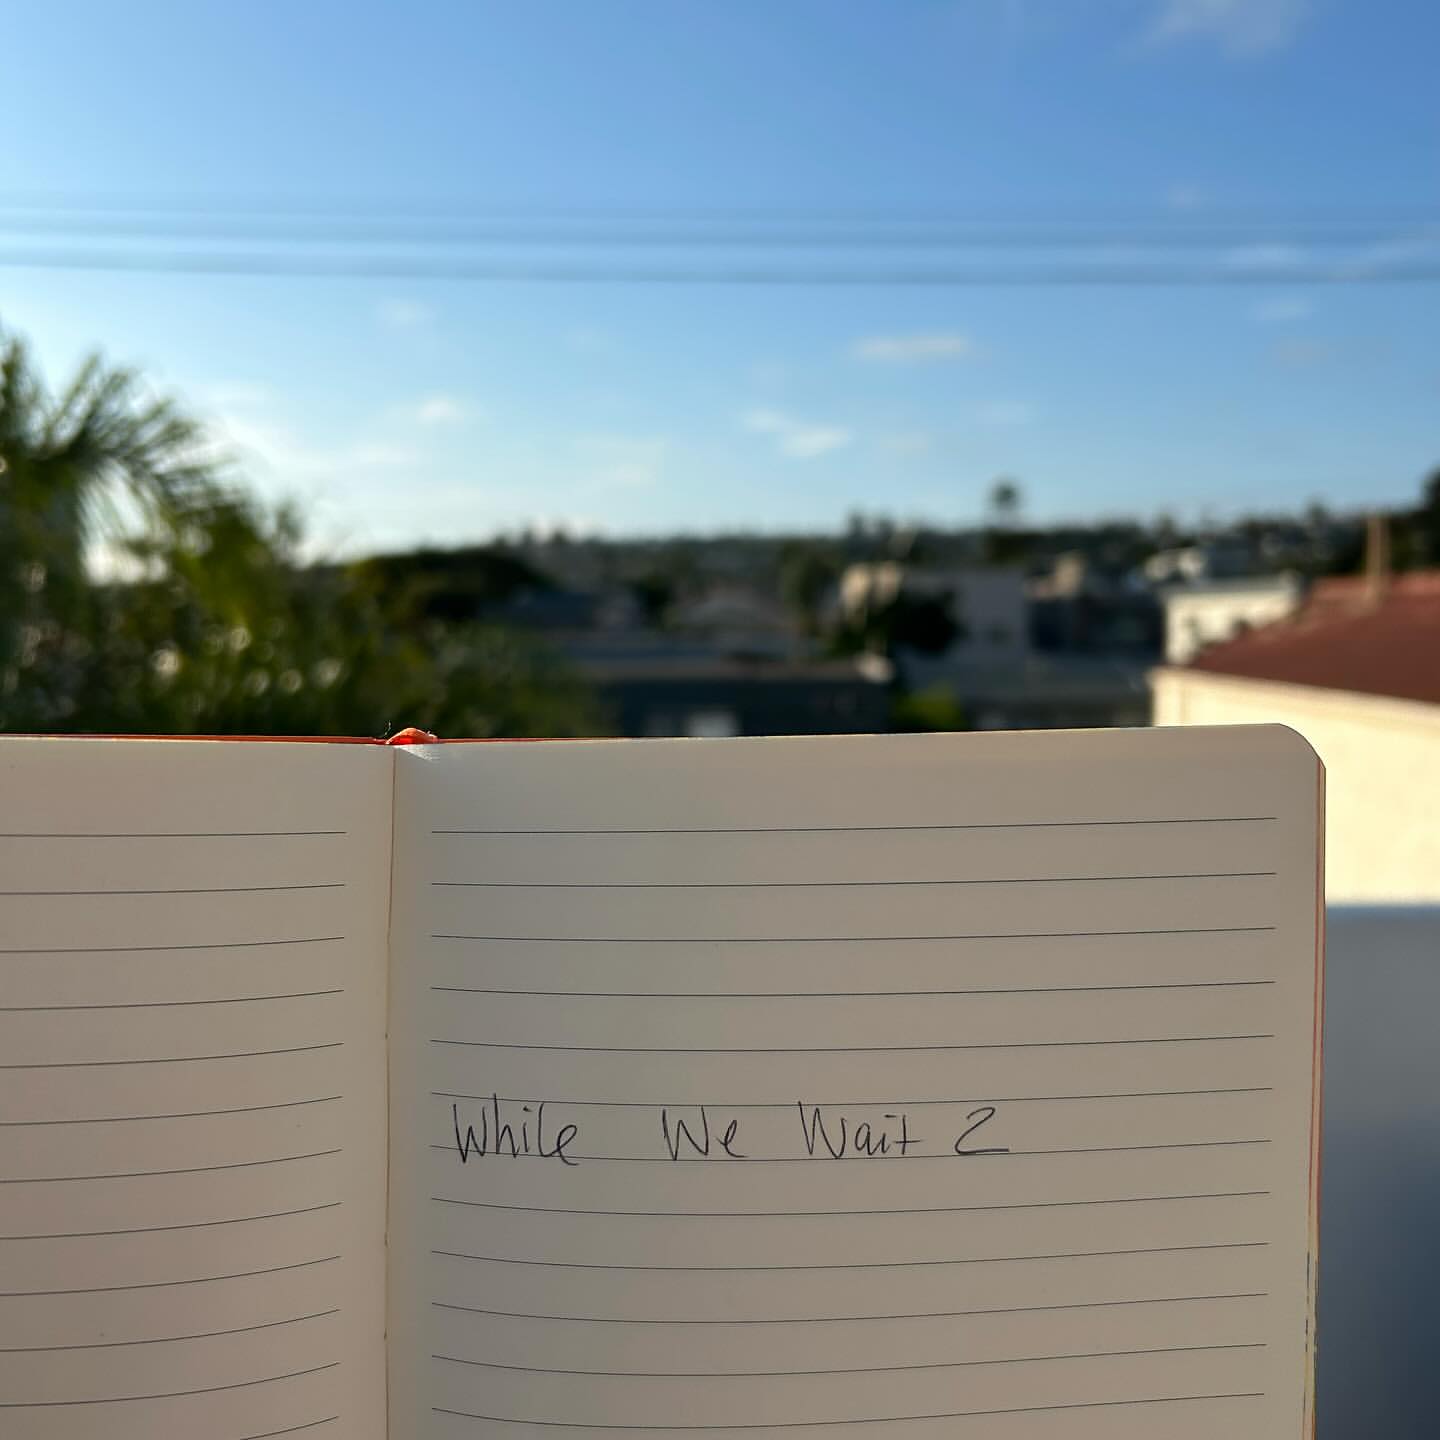 While We Wait 2